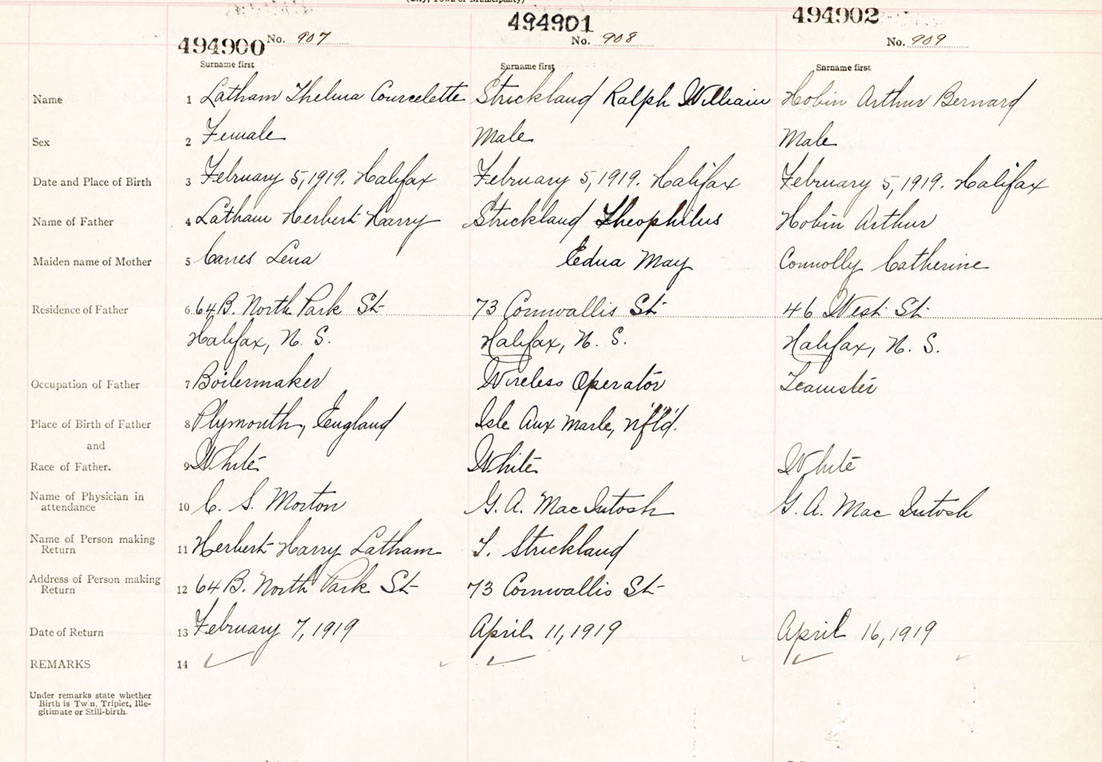 (City, Town or Municipality)
494900 No. 907 494901 No. 908 494902 No. 909
Surname first Surname first Surname first
Name 1 Latham Thelma Courcelette Strickland Ralph William Hobin Arthur Bernard
Sex 2 Female Male Male
Date and Place of Birth 3 February 5, 1919. Halifax February 5, 1919. Halifax February 5, 1919. Halifax
Name of Father 4 Latham Herbert Harry Strickland Theophilus Hobin Arthur
Maiden name of Mother 5 Lena Edna May Connolly Catherine
Residence of Father 6 64 B. North Park St 73 Cornwallis St 46 West St.
Halifax, N. S. Halifax, N. S. Halifax, N. S.
Occupation of Father 7 Boilermaker Wireless Operator Teamster
Place of Birth of Father 8 Plymouth, England Isle Aux Marle, Nfld.
and
Race of Father. 9 White White White
Name of Physician in
attendance 10 C. S. Morton G. A. MacIntosh G. A. Mac Intosh
Name of Person making
Return 11 Herbert Harry Latham T. Strickland
Address of Person making
Return 12 64 B. North Park St 73 Cornwallis St
Date of Return 13 February 7, 1919 April 11, 1919 April 16, 1919
REMARKS 14
Under remarks state whether
Birth is Twin, Triplet, Ille-
gitimate or Still-birth.